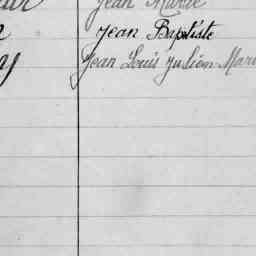 Jean Marie
Jean Baptiste
Jean Louis Julien Mari